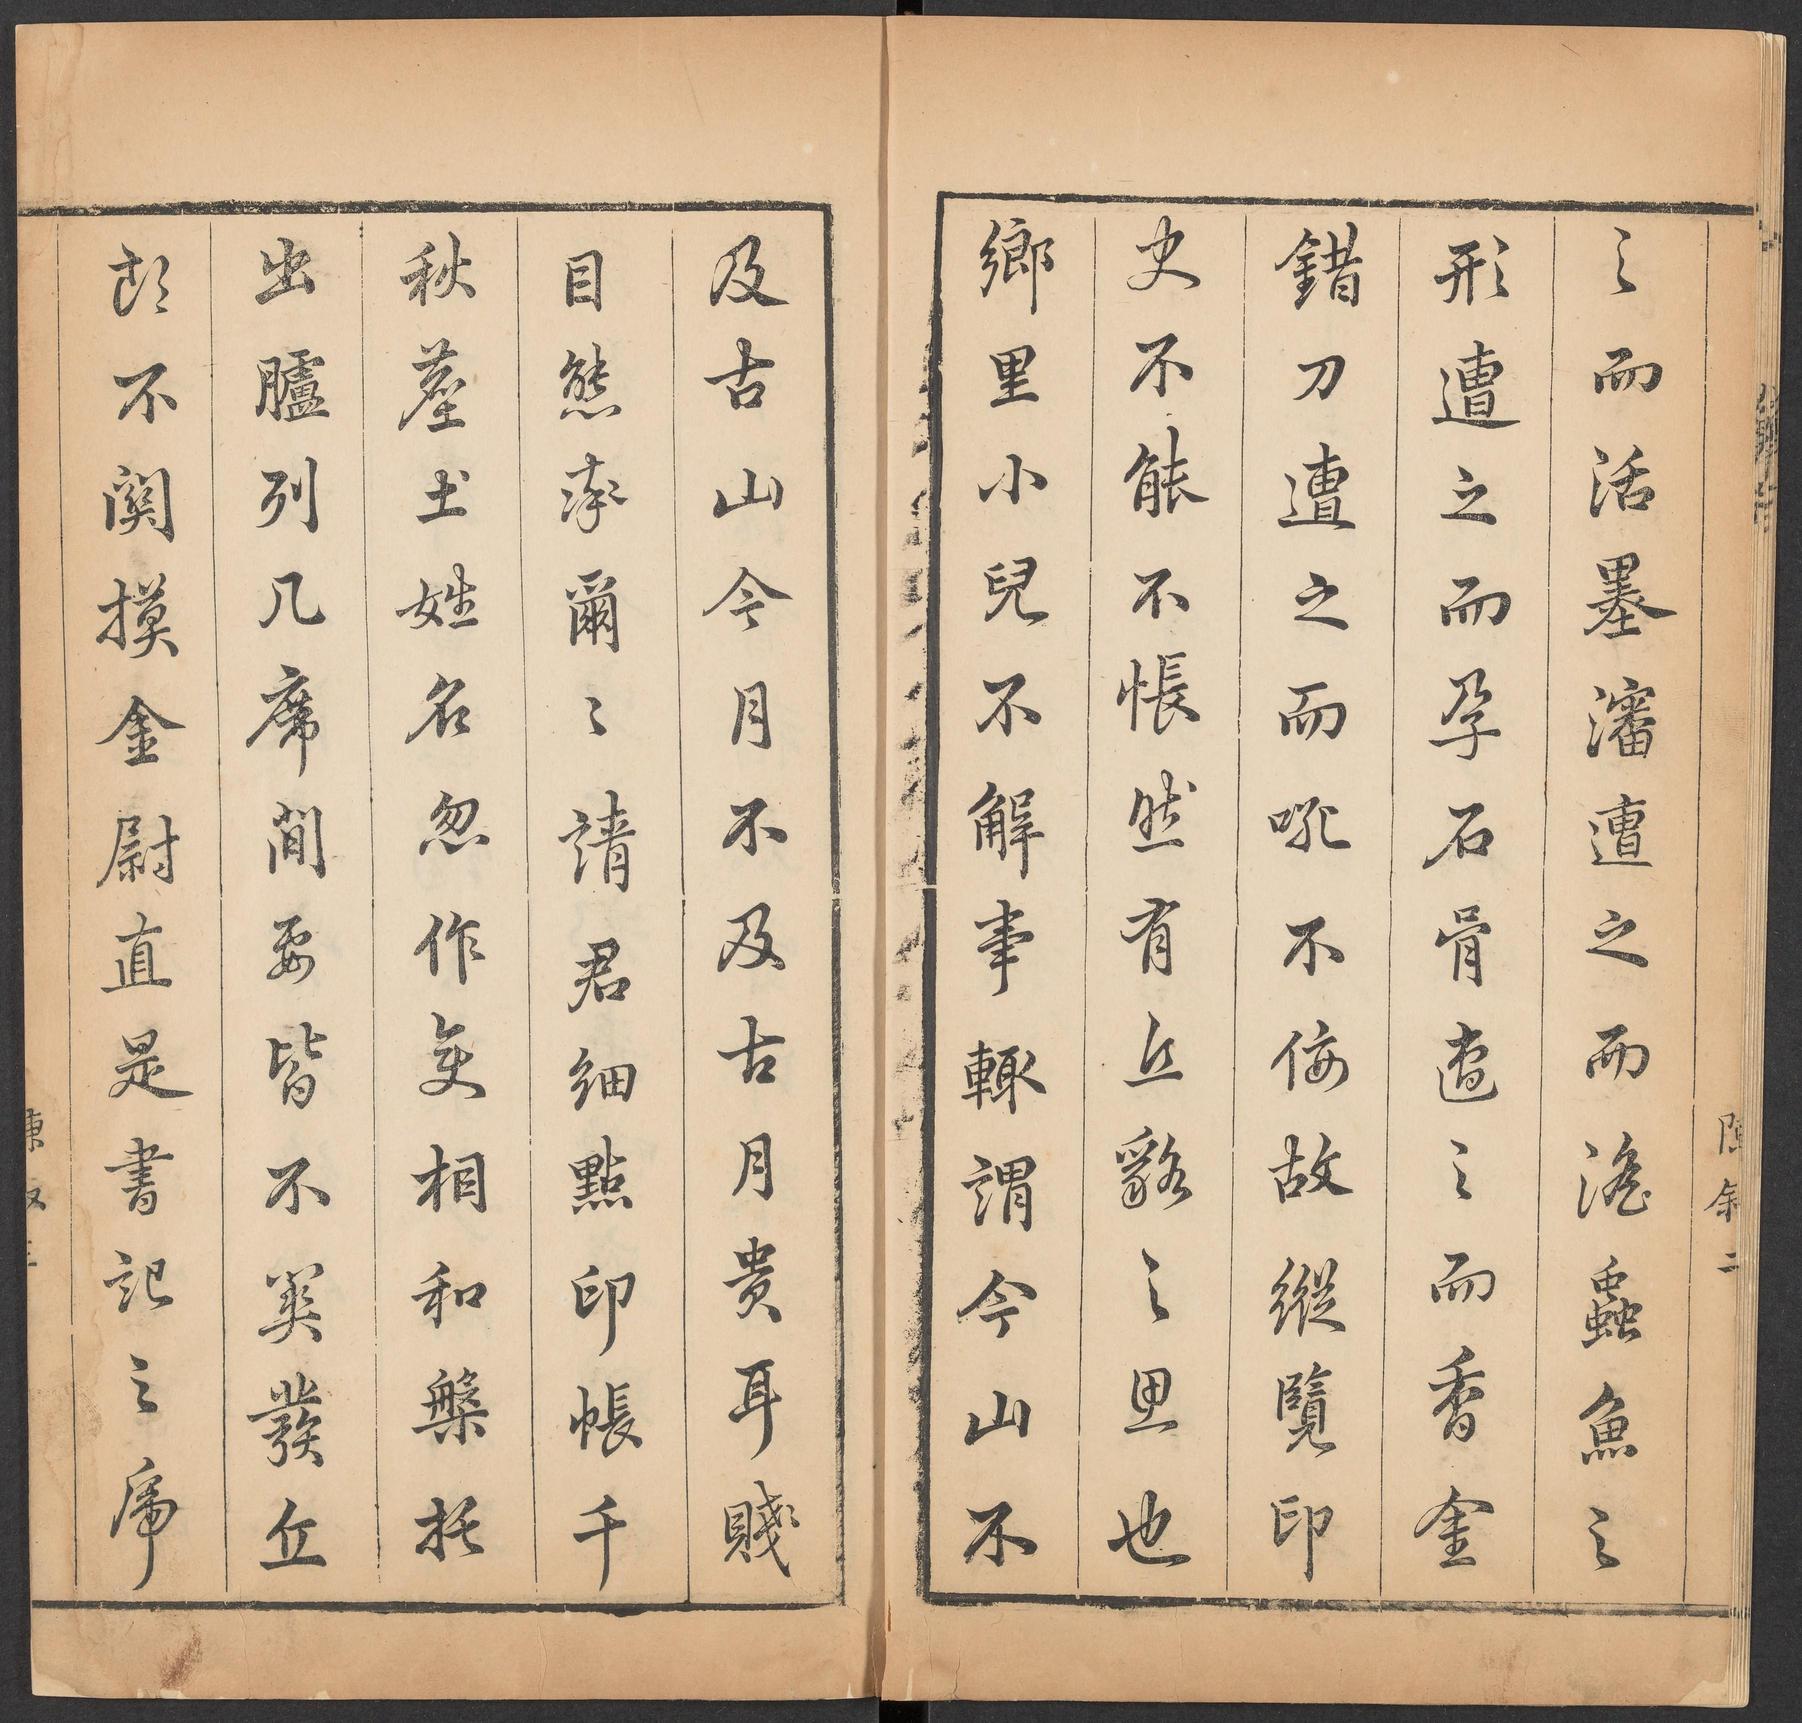 之而活墨瀋遭之而滛蟲魚之
形遭之而孕石骨遭之而香金
錯刀遭之而吪不佞故縱覽印
史不能不悵然有丘貉之思也
鄉里小兒不解事輒謂今山不
及古山今月不及古月貴耳賤
目態率爾爾請君細點印帳千
秋塵土姓名忽作矣相和槃托
出臚列几席間要皆不異發丘
郎不關摸金尉直是書記之席
叙二